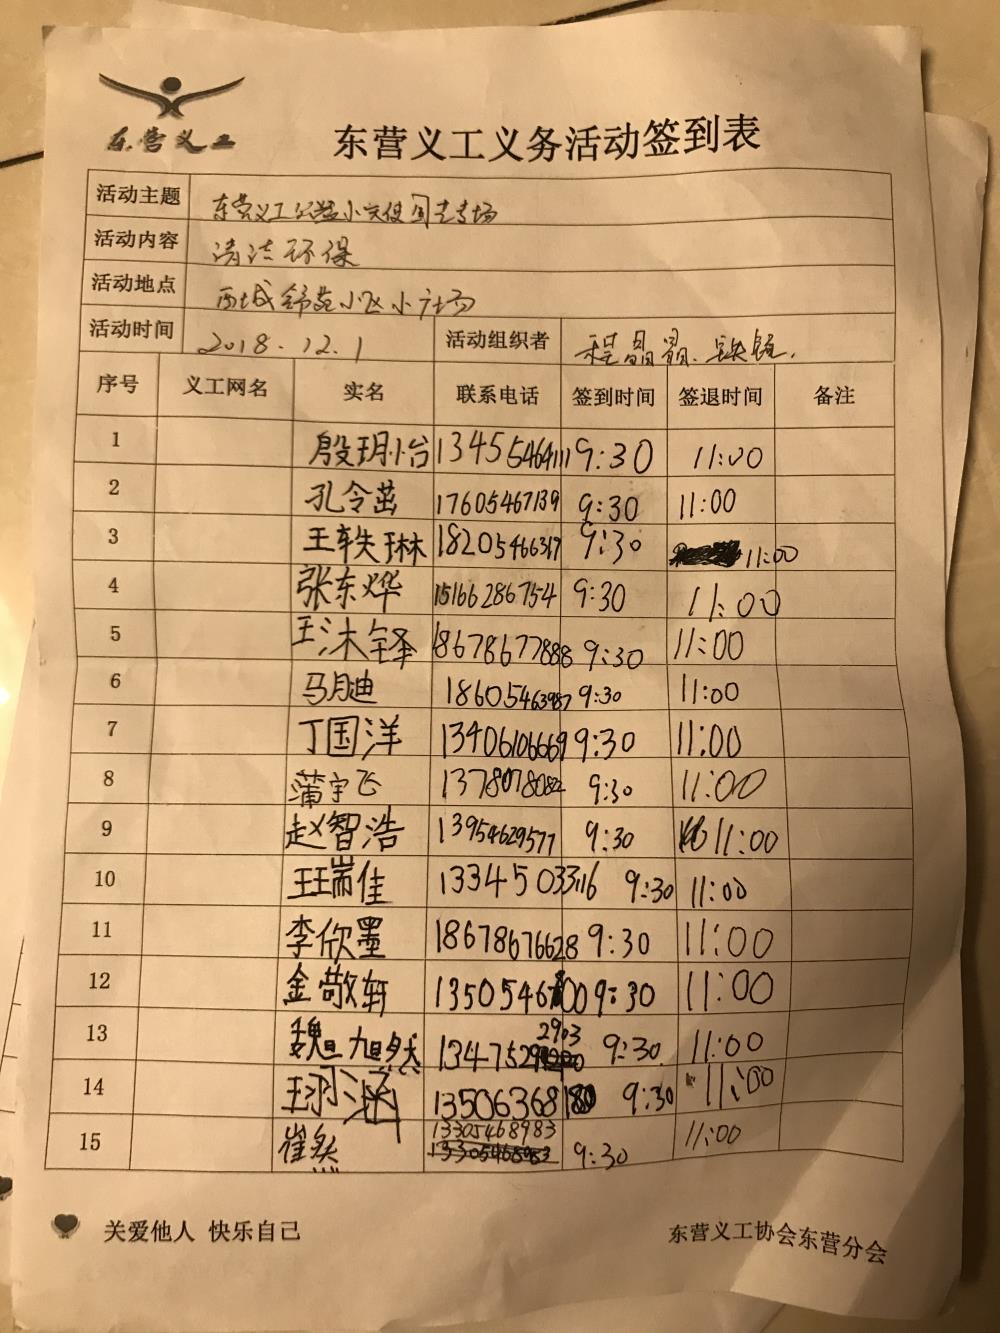 东营义工
东营义工义务活动签到表
活动主题 东营义工公益小天使同走专场
活动内容 清洁环保
活动地点 西城舒苑小区小广场
活动时间 2018.12.1 活动组织者 程晶晶.
序号 义工网名 实名 联系电话 签到时间 签退时间 备注
1 殷玥怡 13455464111 9:30 11:00
2 孔令茁 17605467139 9:30 11:00
3 王轶琳 18205466317 9:30 11:00
4 张东烨 15166286754 9:30 11:00
5 王沐铎 18678677888 9:30 11:00
6 马月迪 18605463987 9:30 11:00
7 丁国洋 13406106669 9:30 11:00
8 蒲宇飞 1378078082 9:30 11:00
9 赵智浩 13954629577 9:30 11:00
10 王瑞佳 13345033116 9:30 11:00
11 李欣墨 18678676628 9:30 11:00
12 金敬轩 9:30 11:00
13 魏旭然 13475292903 9:30 11:00
14 王涵 9:30 11:00
15 崔然 13305468983 9:30 11:00
关爱他人 快乐自己
东营义工协会东营分会